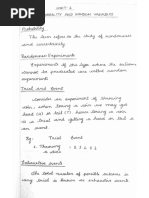 UNIT 2
PROBABILITY AND RANDOM VARIABLES
Probability
The term refers to the study of randomness
and uncertainity.
Random Experiments
Experiment of the type when the outcome
cannot be predicted are called random
experiments
Trial and Event
Consider an experiment of throwing
a coin. When tossing a coin we may get
head (H) or tail (T). Here tossing a coin
is a trial and getting a head or tail is
an event.
Eg: Trial Event
1. Throwing 1 2 3 4 5 6
a dice
Exhaustive event
The total number of possible outcomes in
any trial is known as exhaustive event